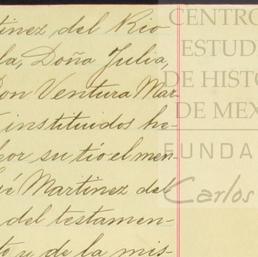 tinez del Rio
la, Doña Julia,
Don Ventura Mar
instituidos he-
por su tio el men-
Martinez del
del testamen-
to y de la mis-
CENTRO
ESTUD
DE HISTO
DE MEX
FUNDA
Carlos